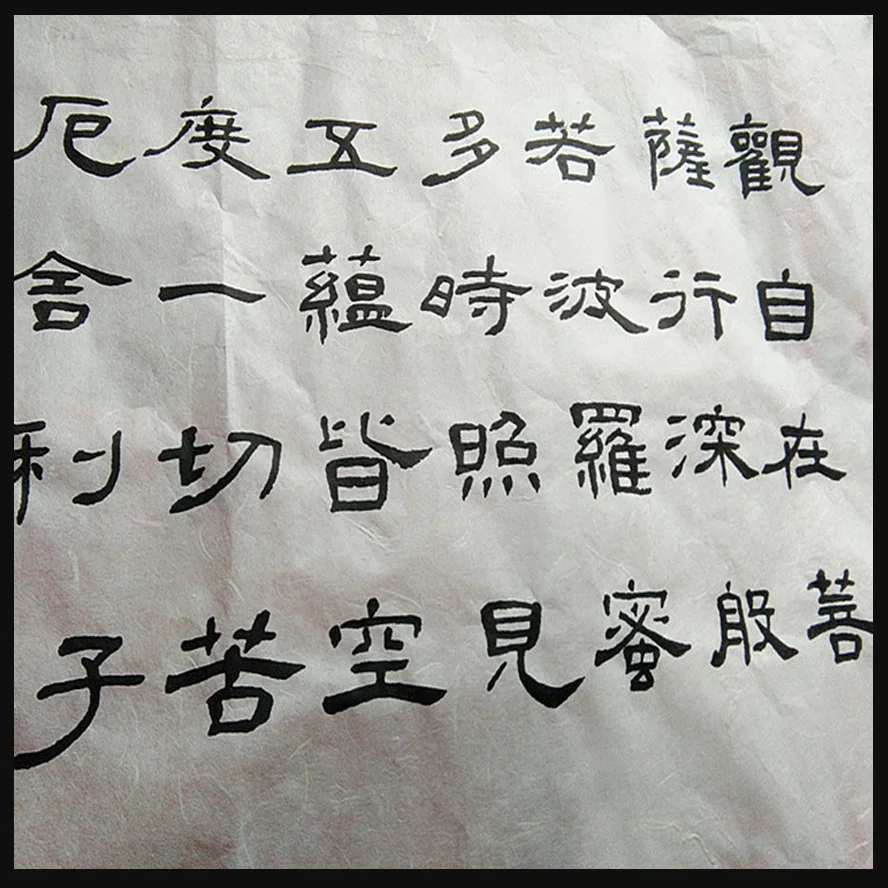 觀自在菩
薩行深般
若波羅蜜
多時照見
五蘊皆空
度一切苦
厄舍利子